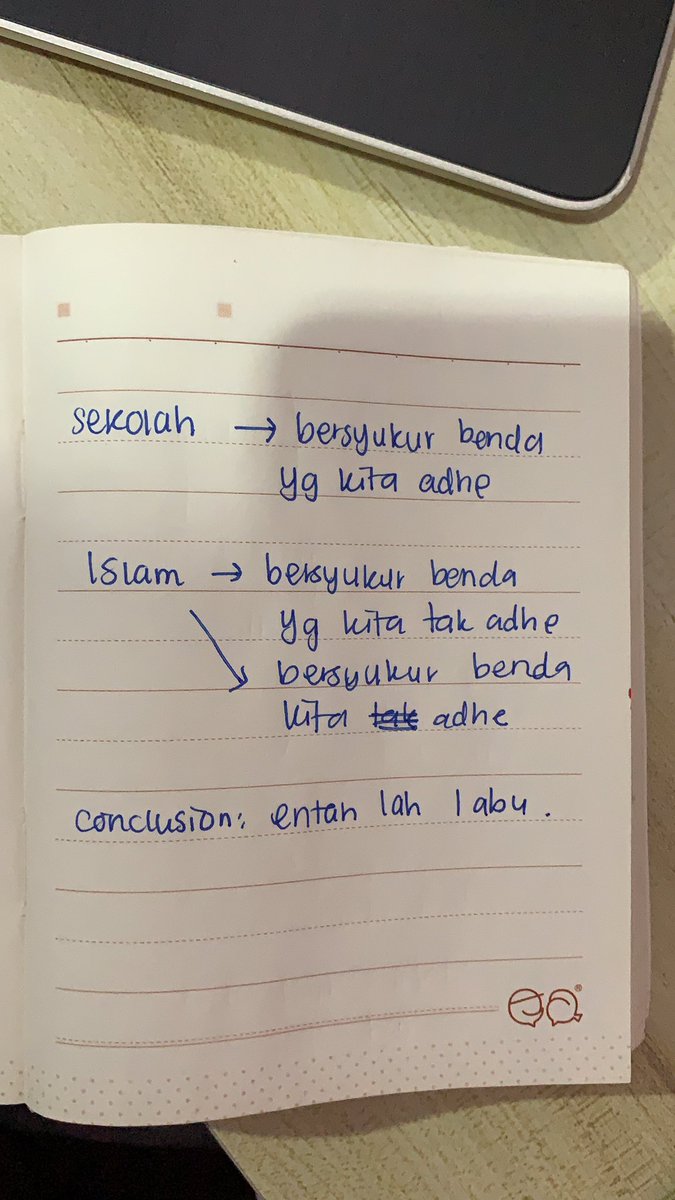 sekolah → bersyukur benda
yg kita adhe
Islam → bersyukur benda
yg kita tak adhe
↘ bersyukur benda
kita tak adhe
conclusion: entah lah labu.